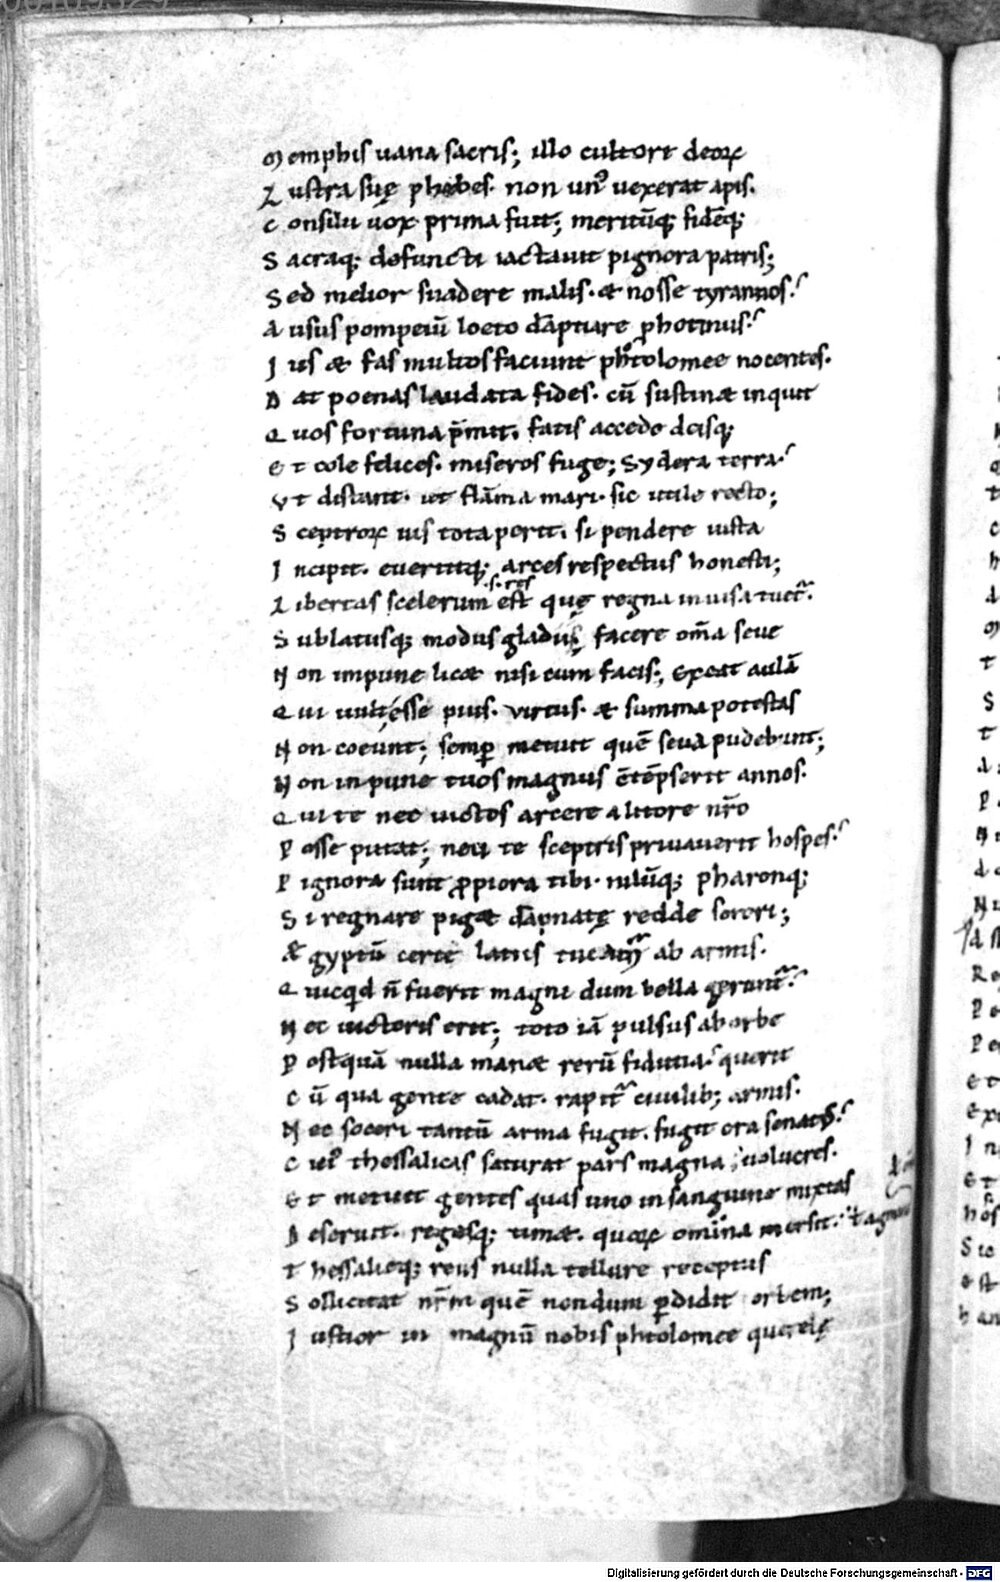 00109329
Memphis uana sacris; illo cultore deoꝝ
Lustra suę phębes. non unꝰ uexerat apis.
Consilii uox prima fuit; meritūq; fidēq;
Sacraq; defuncti iactauit pignora patris;
Sed melior suadere malis. & nosse tyrannos.
Ausus pompeiū loeto dāpnare photinus.
Ius & fas multos faciunt phtolomee nocentes.
Dat poenas laudata fides. cū sustin& inquit
Quos fortuna p̄mit. fatis accede deisq;
Et cole felices. miseros fuge; Sydera terra.
Vt distant. ut flāma mari. sic utile recto;
Sceptroꝝ uis tota perit. si pendere iusta
Incipit. euertitq; arces respectus honesti;
.s. res
Libertas scelerum est quę regna inuisa tuet᷑.
Sublatusq; modus gladiis facere om̄a seue
Non impune lic& nisi cum facis; Exeat aulā
Qui uult esse pius. virtus. & summa potestas
Non coeunt; semꝑ metuet quē seua pudebunt;
Non inpune tuos magnus c̄tēpserit annos.
Qui te nec uictos arcere a litore nr̄o
Posse putat; neu te sceptris priuauerit hospes.
Pignora sunt ꝓpiora tibi. nilūq; pharonq;
Si regnare pig& dāpnatę redde sorori;
Ægyptū certe latiis tueam᷑ ab armis.
Quicqid n̄ fuerit magni dum bella gerunt᷑.
Nec uictoris erit; toto iā pulsus ab orbe
Postquā nulla man& rerū fiducia. querit
Cū qua gente cadat. rapit᷑ ciuilib; armis.
Nec soceri tantū arma fugit. fugit ora senatꝰ.
Cuiꝰ thessalicas saturat pars magna uolucres.
Et metuit gentes quas uno in sanguine mixtas
Deseruit. regesq; tim&. quoꝝ omīna mersit.
Thessalieq; reus nulla tellure receptus
Sollicitat nr̄m quē nondum ꝑdidit orbem;
Iustior in magnū nobis phtolomee querelę
Digitalisierung gefördert durch die Deutsche Forschungsgemeinschaft - DFG